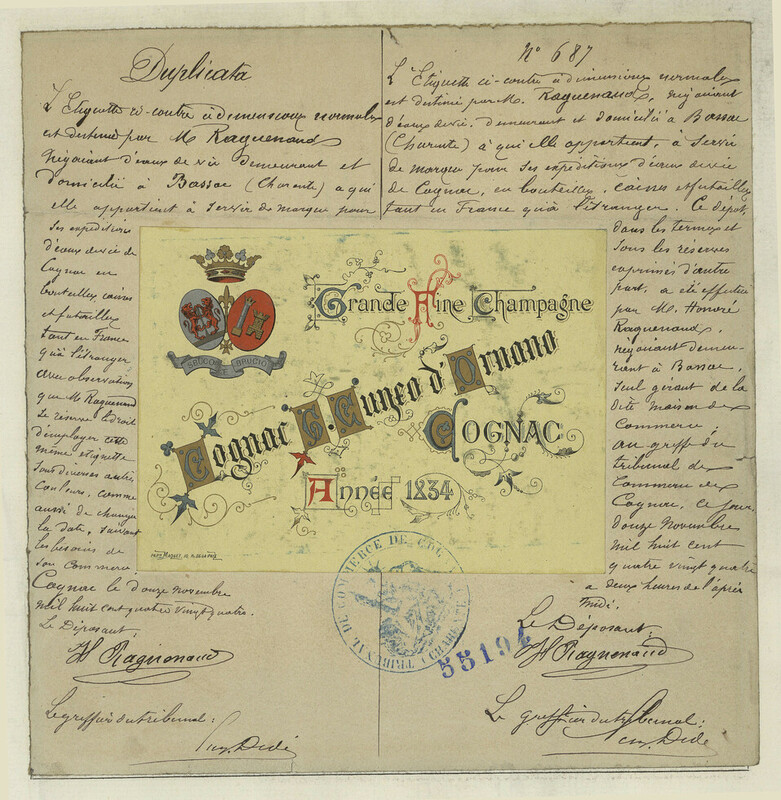 Duplicata
L'Etiquette ci-contre à dimensions normales
est destinée par M. Raguenaud
Négociant d'eaux de vie demeurant et
domicilié à Bassac (Charente) à qui
elle appartient à servir de marque pour
ses expéditions
d'eaux de vie de
Cognac en
bouteilles caisses
et futailles
tant en France
qu'à l'étranger
avec observations
que M. Raguenaud
se réserve le droit
d'employer cette
même étiquette
sous diverses autres
couleurs, comme
aussi de changer
la date, suivant
les besoins de
son commerce.
Cognac le douze novembre
mil huit cent quatre vingt quatre.
Le Déposant,
H Raguenaud
Le greffier du tribunal:
N° 687
L'Etiquette ci-contre à dimensions normales
est destinée par M. Raguenaud, négociant
d'eaux de vie, demeurant et domicilié à Bassac
(Charente) à qui elle appartient, à servir
de marque pour ses expéditions d'eaux de vie
de Cognac, en bouteilles, caisses et futailles
tant en France qu'à l'étranger. Ce dépôt,
dans les termes et
sous les réserves
exprimés d'autre
part, a été effectué
par M. Honoré
Raguenaud,
négociant demeu-
rant à Bassac,
seul gérant de la
dite maison de
Commerce,
au greffe du
tribunal de
Commerce de
Cognac, ce jour,
douze novembre
mil huit cent
quatre vingt quatre
à deux heures de l'après
midi.
Le Déposant,
H Raguenaud
Le greffier du tribunal:
Grande Fine Champagne
Cognac C. Cuneo d'Ornano
COGNAC
Année 1834
TRIBUNAL DE COMMERCE DE COGNAC
55194